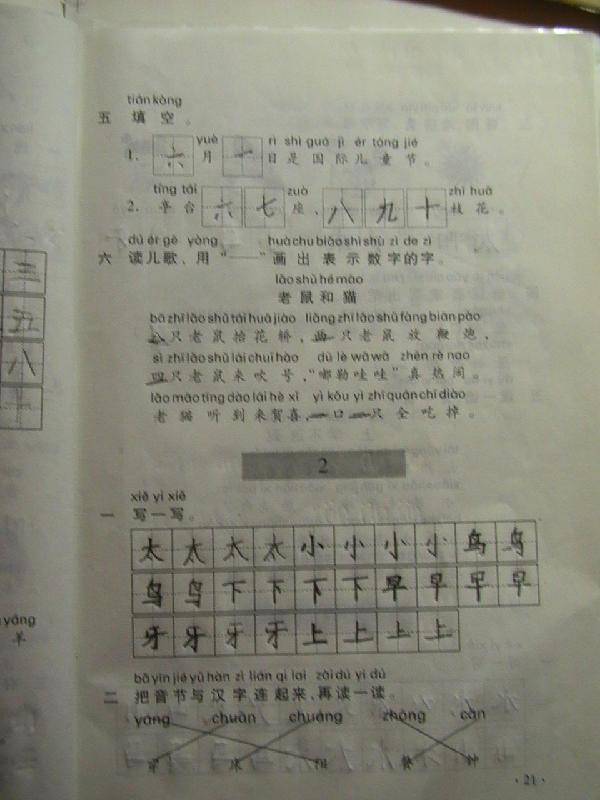 tián kòng
五 填 空 。
yuè rì shì guó jì ér tóng jié
1. 六 月 一 日 是 国 际 儿 童 节 。
tíng tái zuò zhī huā
2. 亭 台 六 七 座 、 八 九 十 枝 花 。
dú ér gē yòng huà chū biǎo shì shù zì de zì
六 读儿歌、用“——”画 出 表 示 数字的字。
lǎo shǔ hé māo
老鼠和猫
bā zhī lǎo shǔ tái huā jiào liǎng zhī lǎo shǔ fàng biān pào
八只老鼠抬花轿，两只老鼠放鞭炮，
sì zhī lǎo shǔ lái chuī hào dū lè wā wā zhēn rè nao
四只老鼠来吹号，“嘟勒哇哇”真热闹。
lǎo māo tīng dào lái hè xǐ yì kǒu yì zhī quán chī diào
老猫听到来贺喜，一口一只全吃掉。
2
xiě yi xiě
一 写一写。
太 太 太 太 小 小 小 小 鸟 鸟
鸟 鸟 下 下 下 下 早 早 早 早
牙 牙 牙 牙 上 上 上 上
bǎ yīn jié yǔ hàn zì lián qǐ lai zài dú yi dú
二 把音节与汉字连起来,再读一读。
yáng chuān chuáng zhōng cān
穿 床 阳 餐 钟
三
五
八
十
yáng
羊
·21·